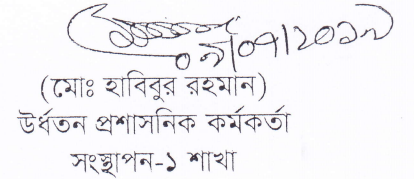 (মোঃ হাবিবুর রহমান)
উর্ধতন প্রশাসনিক কর্মকর্তা
সংস্থাপন-১ শাখা